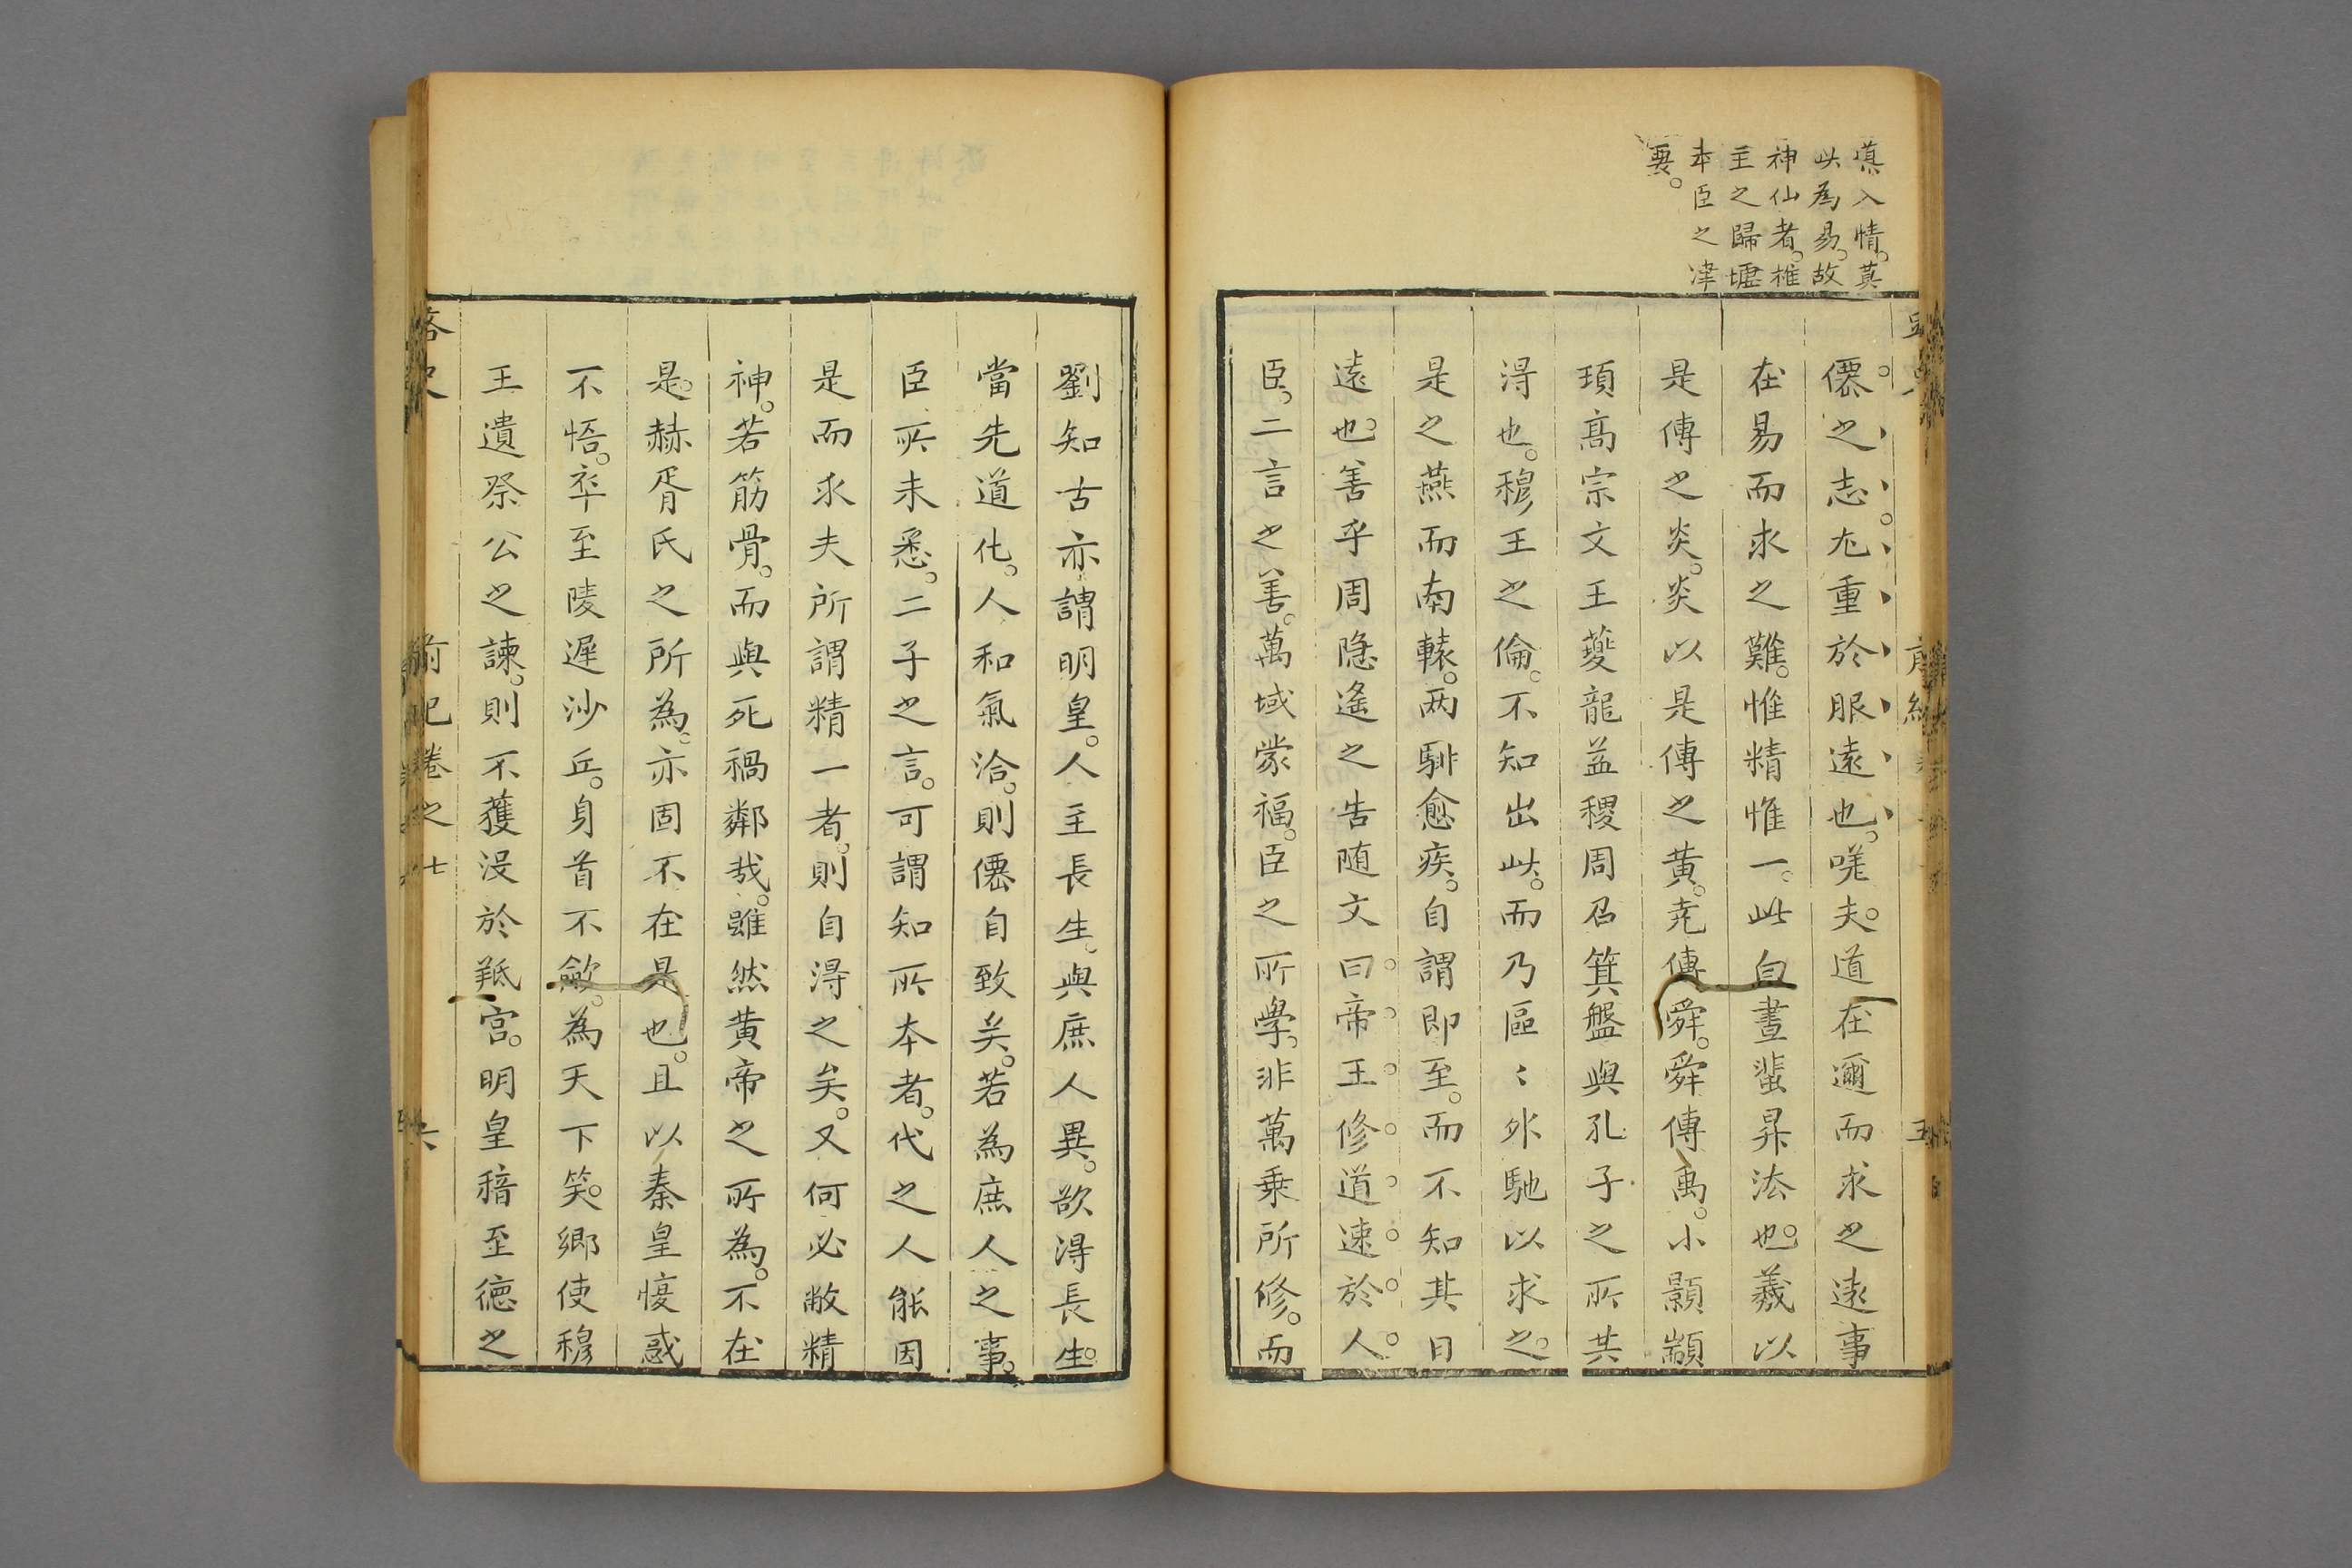 道入情。莫
此為易。故
神仙者。惟
主之歸墟
本臣之津
要。
僊之志。尤重於服遠也。嘆夫。道在邇而求之遠事
在易而求之難。惟精惟一。此白晝蜚昇法也。羲以
是傳之炎。炎以是傳之黄。尭傳舜。舜傳禹。小顥顓
頊髙宗文王夔龍益稷周召箕盤與孔子之所共
淂也。穆王之倫。不知出此。而乃區〻外馳以求之。
是之燕而南轅。两騑愈疾。自謂即至。而不知其日
逺也。善乎周隐遙之告隋文曰。帝王修道速於人
臣。二言之善。萬域蒙福。臣之所學。非萬乗所修。而
劉知古亦謂明皇。人主長生。與庶人異。欲淂長生。
當先道化。人和氣洽。則僊自致矣。若為庶人之事。
臣所未悉。二子之言。可謂知所本者。代之人能因
是而求夫所謂精一者。則自淂之矣。又何必敝精
神。若筋骨。而與死禍鄰哉。雖然黄帝之所為。不在
是。赫胥氏之所為。亦固不在是也。且以秦皇愎惑
不悟。卒至陵遲沙丘。身首不斂。為天下笑。鄉使穆
王遺祭公之諫。則不獲沒於羝宫。明皇稽至徳之
路史
前紀卷之七
六